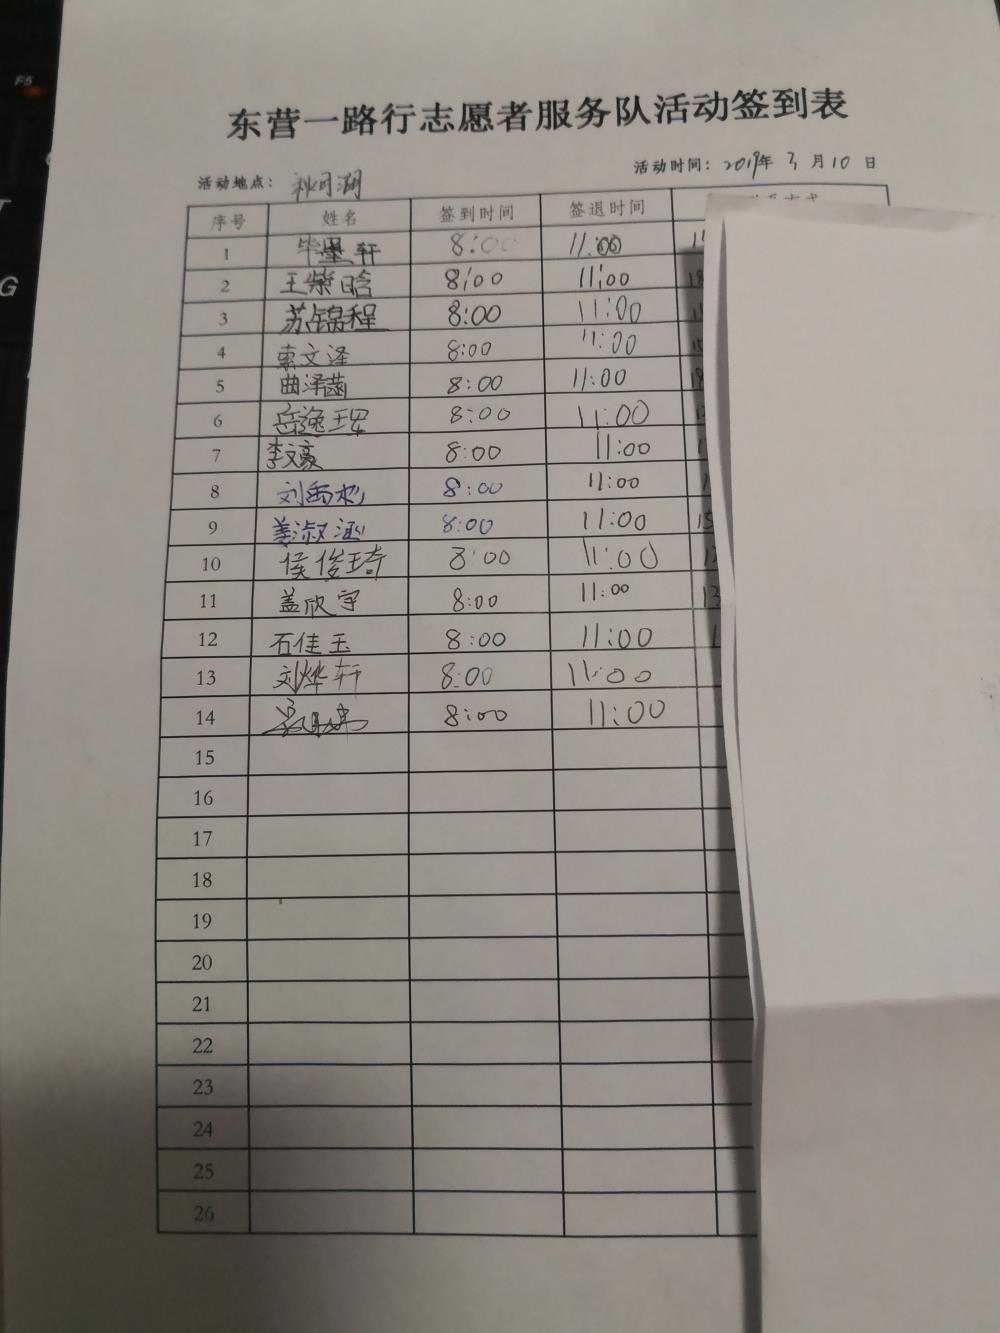 F5
G
东营一路行志愿者服务队活动签到表
活动地点： 活动时间：2019年 3 月 10 日
序号 姓名 签到时间 签退时间
1 毕墨轩 8:00 11:00
2 王紫晗 8:00 11:00
3 苏锦程 8:00 11:00
4 索文泽 8:00 11:00
5 曲泽菡 8:00 11:00
6 岳逸珲 8:00 11:00
7 李文豪 8:00 11:00
8 刘禹杉 8:00 11:00
9 姜淑涵 8:00 11:00
10 侯俊琦 8:00 11:00
11 盖欣宇 8:00 11:00
12 石佳玉 8:00 11:00
13 刘烨轩 8:00 11:00
14 8:00 11:00
15
16
17
18
19
20
21
22
23
24
25
26